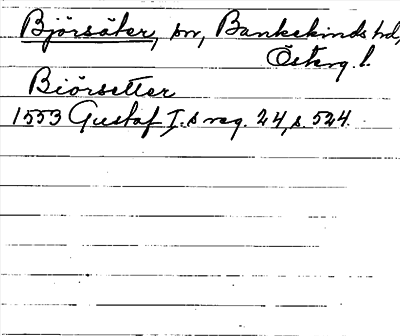 Björsäter, sn, Bankekinds hd,
Österg. l.
Biörsetter
1553 Gustaf I.s reg. 24, s. 524.